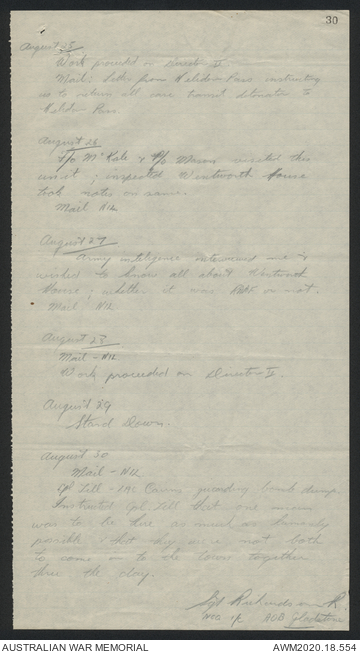 30
August 25
Work proceeded on Director II.
Mail: Letter from Helidon Pass instructing
us to return all transit detonators to
Helidon Pass.
August 26
F/O McKale & P/O Mason visited this
unit; inspected Wentworth House
took notes on same.
Mail Nil
August 27
Army inteligence interviewed me &
wished to know all about Wentworth
House; whether it was RAAF or not.
Mail Nil
August 28
Mail - Nil
Work proceeded on Director II.
August 29
Stand Down.
August 30
Mail - Nil
Cpl Lill - LAC Cairns guarding bomb dump.
Instructed Cpl Lill that one man
was to be there as much as humanly
possible & that they were not both
to come in to the town together
thru the day.
Sgt Richardson R
NCO i/c AOB Gladstone
AUSTRALIAN WAR MEMORIAL
AWM2020.18.554